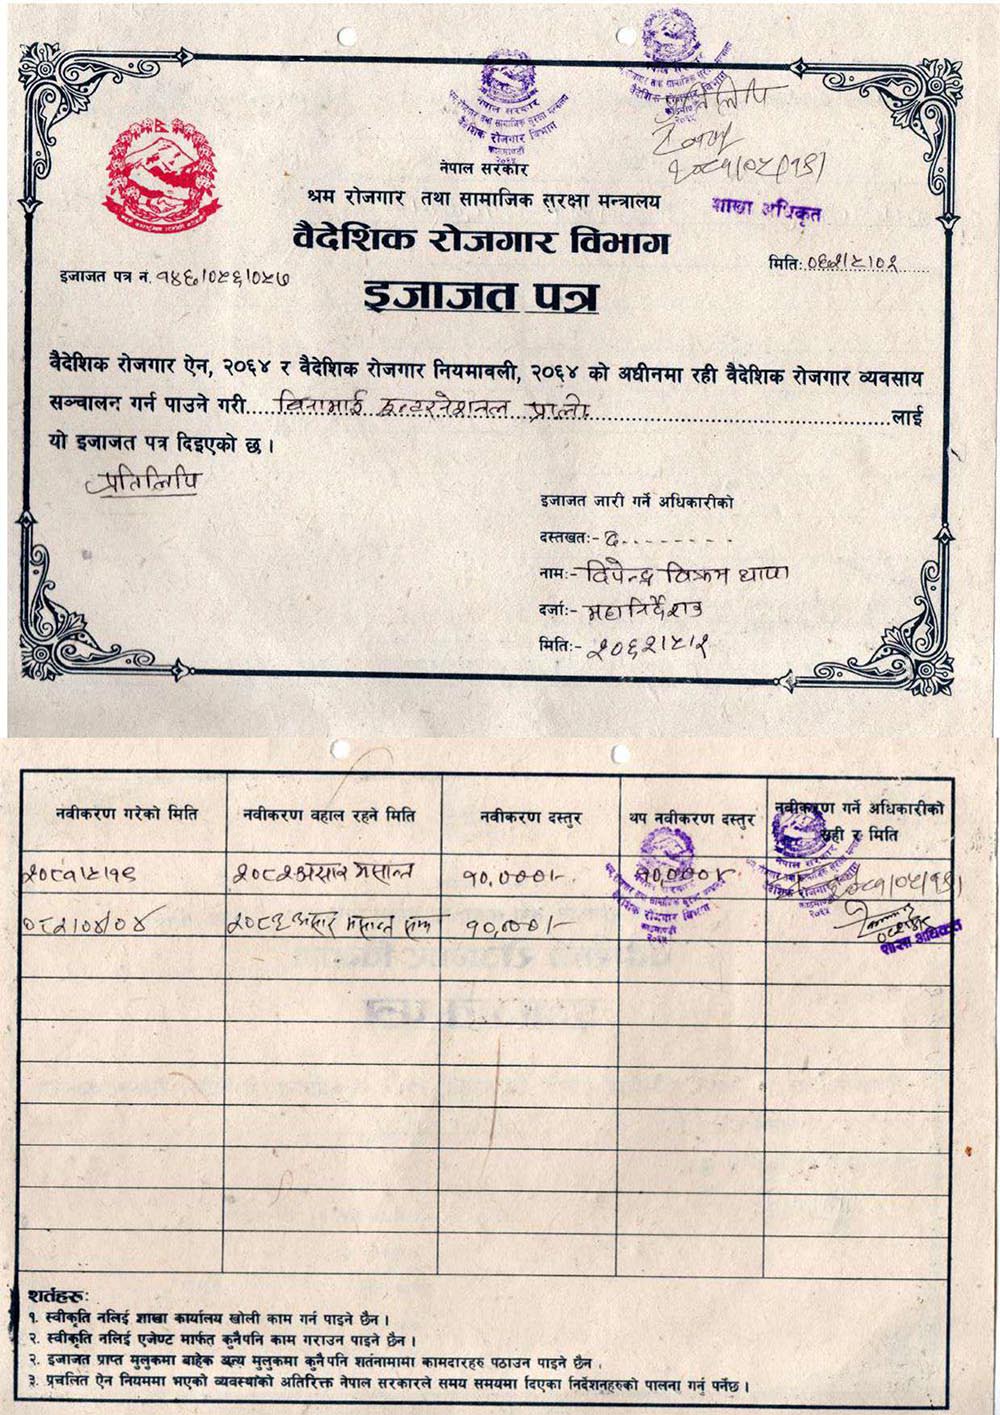 नेपाल सरकार
श्रम रोजगार तथा सामाजिक सुरक्षा मन्त्रालय
वैदेशिक रोजगार विभाग
काठमाण्डौ
२०६५
शाखा अधिकृत
नेपाल सरकार
श्रम रोजगार तथा सामाजिक सुरक्षा मन्त्रालय
वैदेशिक रोजगार विभाग
मिति:
इजाजत पत्र नं. १४६/०५६/०५७
इजाजत पत्र
वैदेशिक रोजगार ऐन, २०६४ र वैदेशिक रोजगार नियमावली, २०६४ को अधीनमा रही वैदेशिक रोजगार व्यवसाय
सञ्चालन गर्न पाउने गरी इन्टरनेशनल प्राली लाई
यो इजाजत पत्र दिइएको छ ।
प्रतिलिपि
इजाजत जारी गर्ने अधिकारीको
दस्तखतः- द.
नामः- दिपेन्द्र विक्रम थापा
दर्जाः- महानिर्देशक
मितिः-
नवीकरण गरेको मिति नवीकरण वहाल रहने मिति नवीकरण दस्तुर थप नवीकरण दस्तुर नवीकरण गर्ने अधिकारीको
सही र मिति
२०८२ असार मसान्त १०,०००/- १०,०००/-
०८२/०४/०४ २०८३ असार मसान्त सम्म १०,०००/-
शाखा अधिकृत
शर्तहरुः
१. स्वीकृति नलिई शाखा कार्यालय खोली काम गर्न पाइने छैन ।
२. स्वीकृति नलिई एजेण्ट मार्फत कुनैपनि काम गराउन पाइने छैन ।
२. इजाजत प्राप्त मुलुकमा बाहेक अन्य मुलुकमा कुनैपनि शर्तनामामा कामदारहरु पठाउन पाइने छैन ।
३. प्रचलित ऐन नियममा भएको व्यवस्थाको अतिरिक्त नेपाल सरकारले समय समयमा दिएका निर्देशनहरुको पालना गर्नु पर्नेछ ।